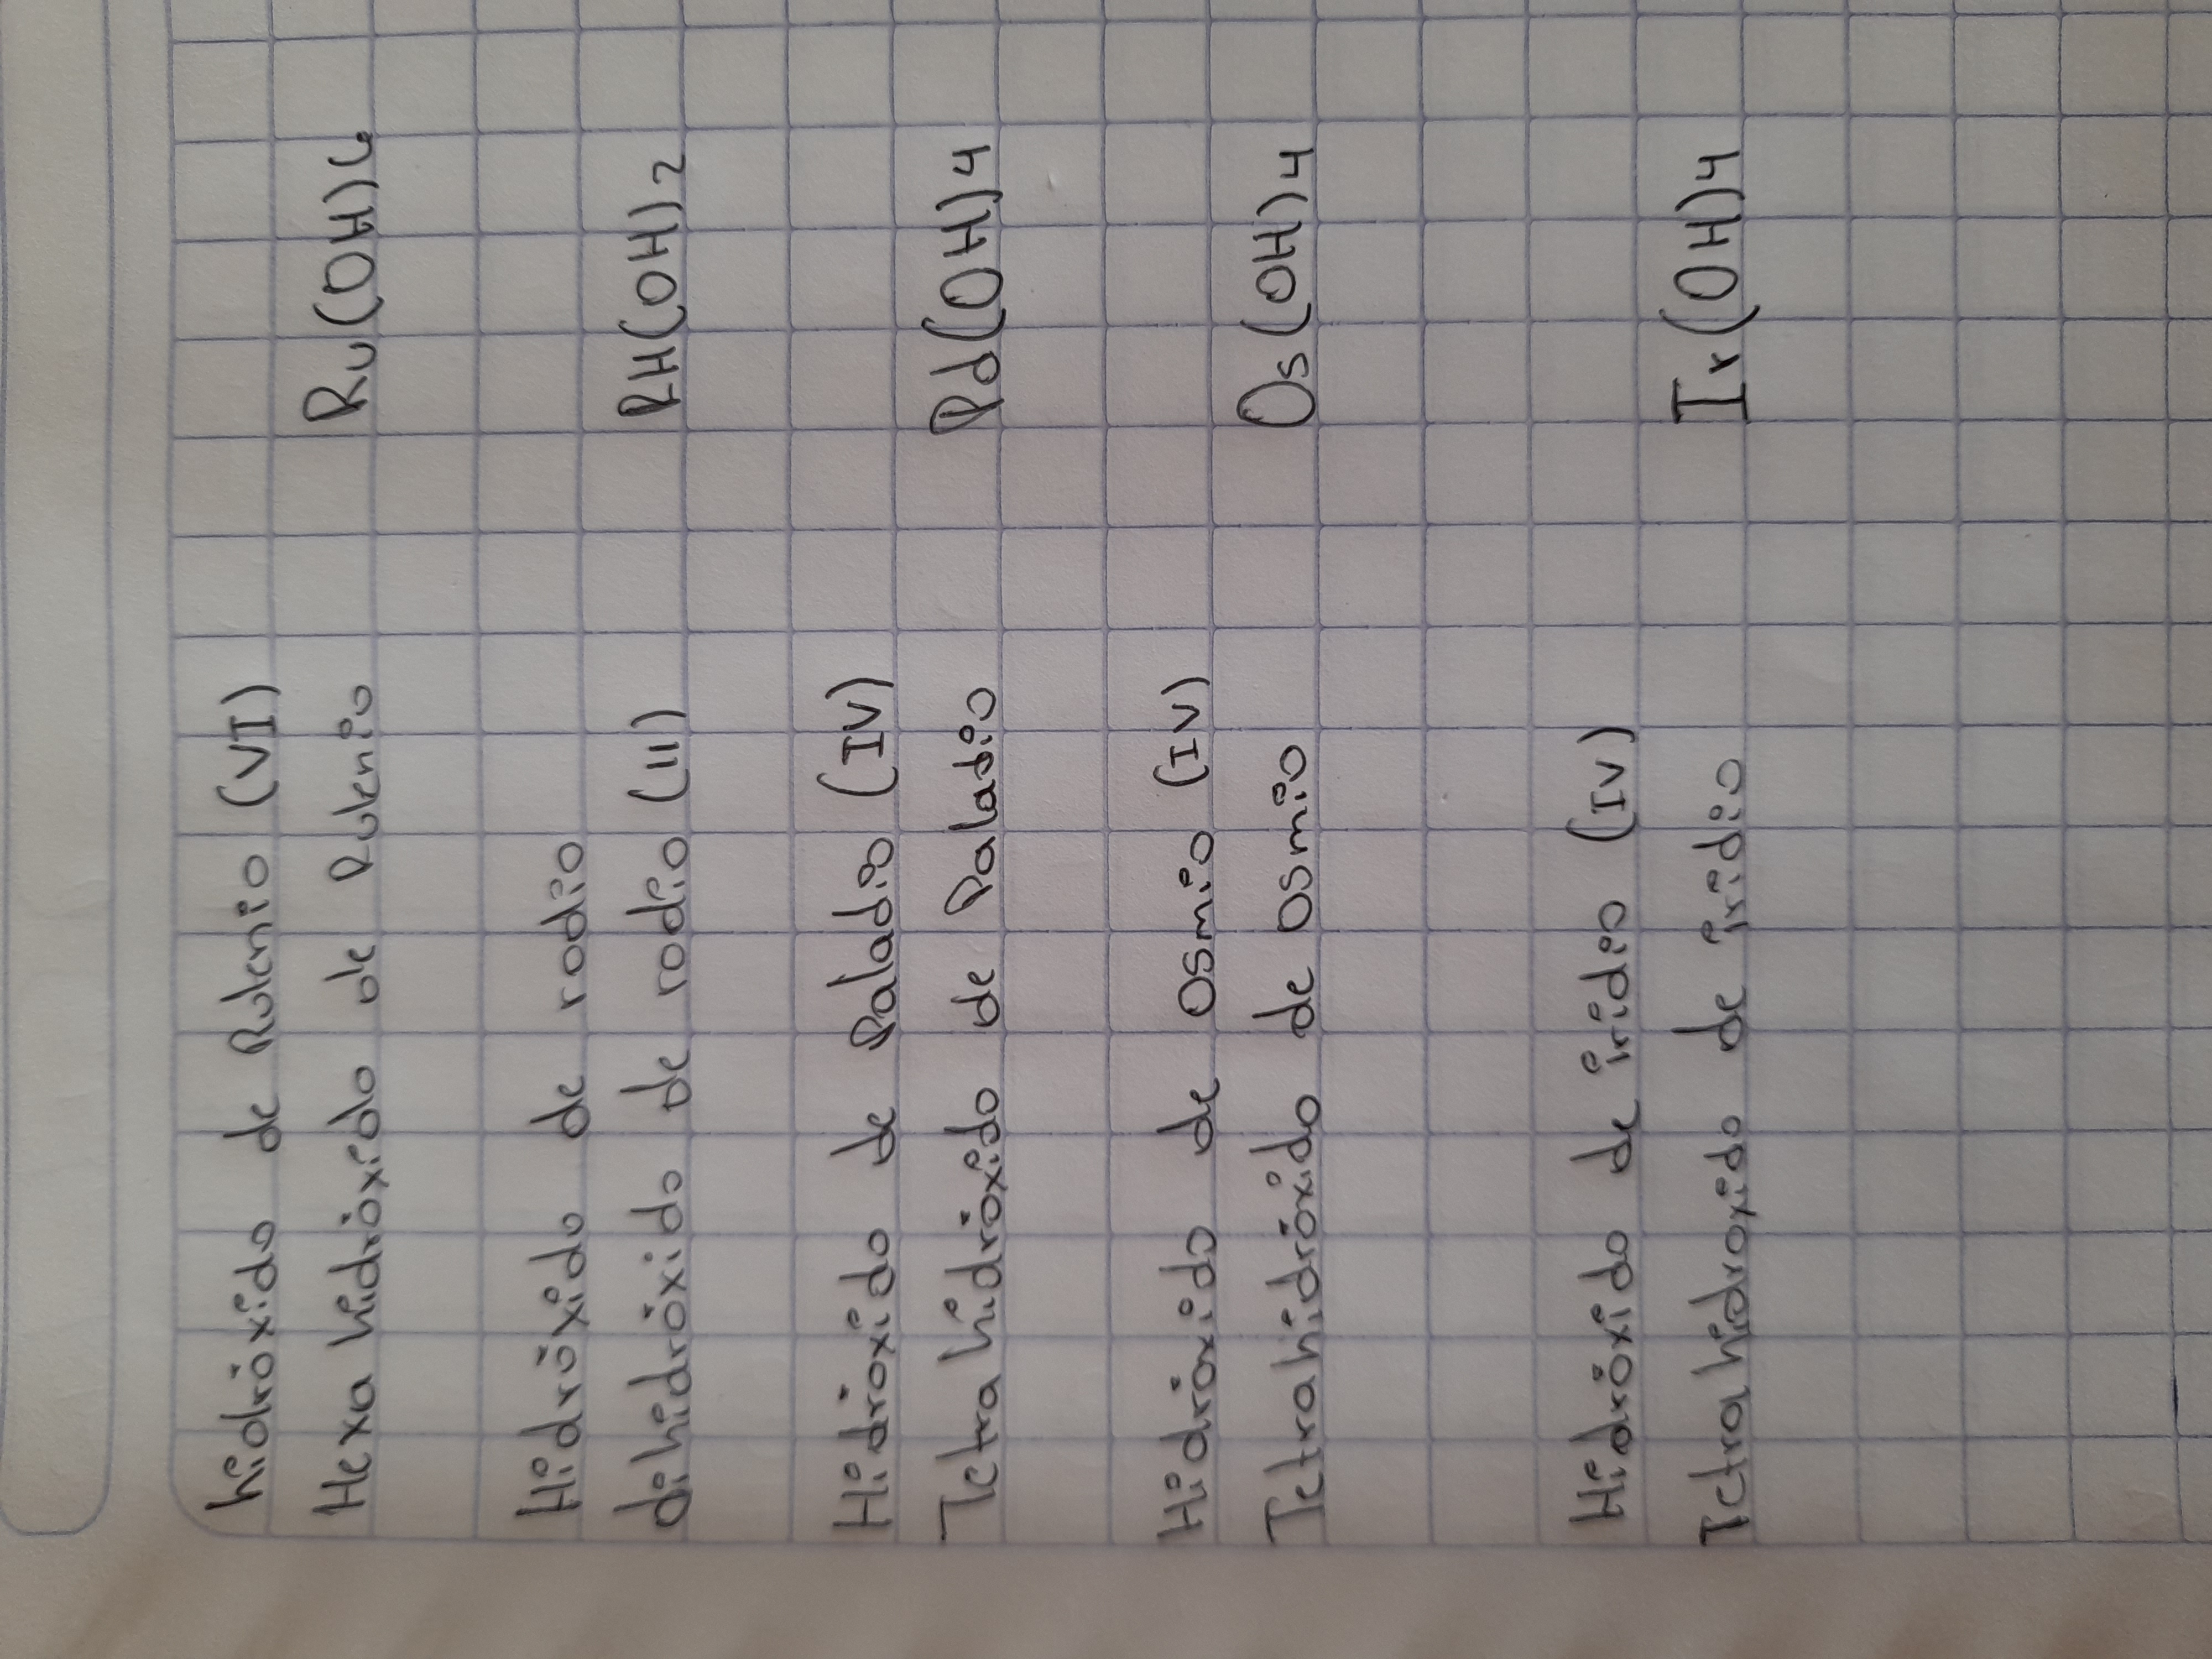 hidróxido de Rutenio (VI)
Hexa hidróxido de Rutenio Ru(OH)6
Hidróxido de rodio
dihidróxido de rodio (II) RH(OH)2
Hidróxido de Paladio (IV)
Tetra hidróxido de Paladio Pd(OH)4
Hidróxido de Osmio (IV)
Tetrahidróxido de Osmio Os(OH)4
Hidróxido de iridio (IV)
Tetrahidroxido de iridio Ir(OH)4